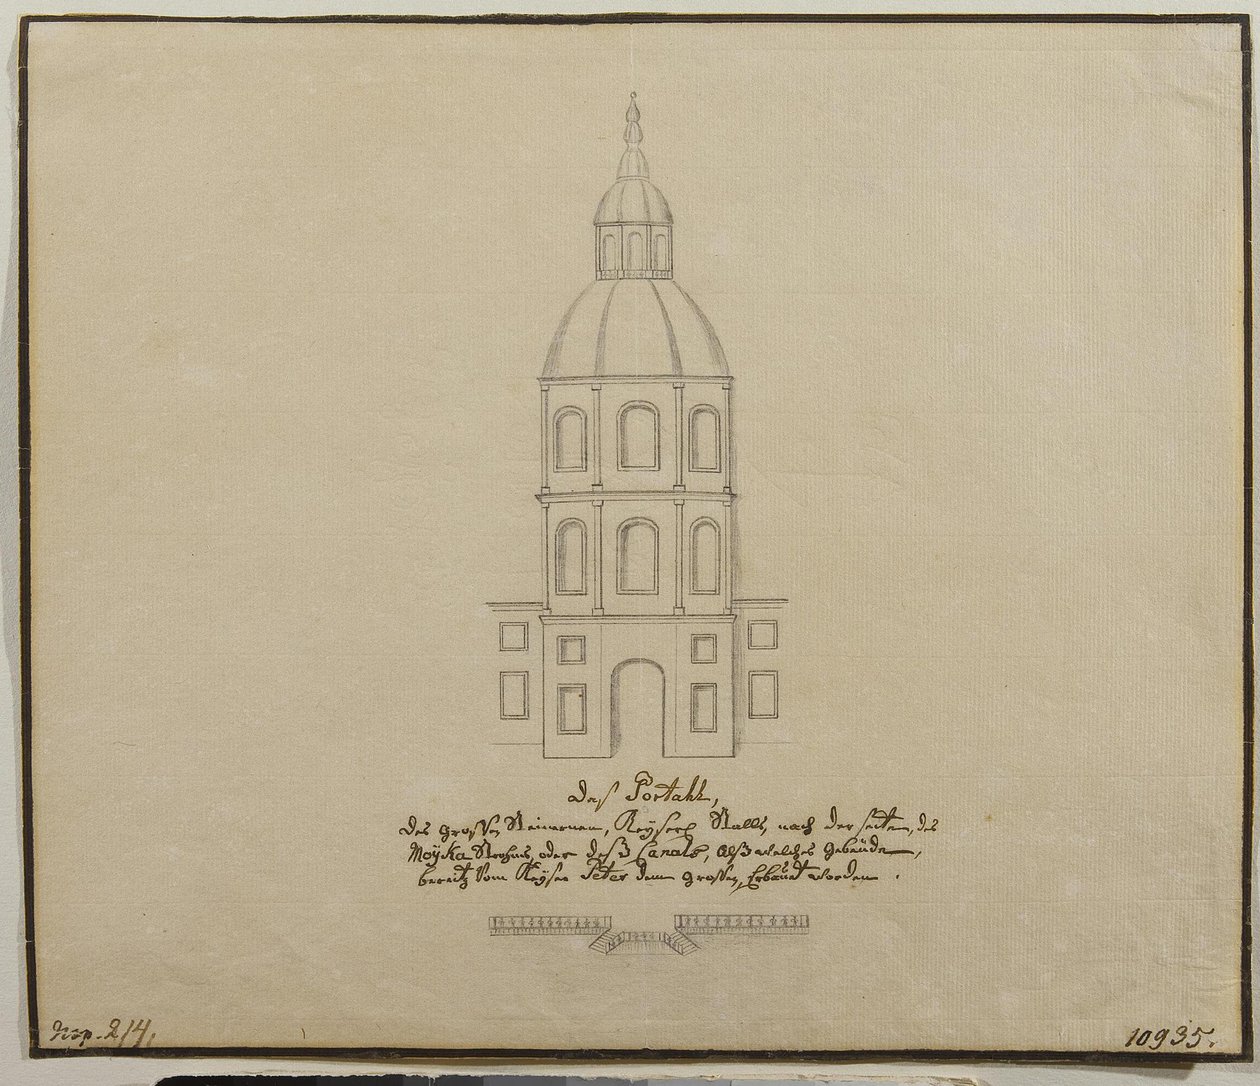 daß Portahl,
des großen Steinernen, Keyserl. Stalls, nach der seiten, des
Moÿka Strohms, oder deß Canals, Alß welches Gebäude,
bereitz Vom Keyser Peter dem großen, Erbauet worden.
Nop. 214.
10935.